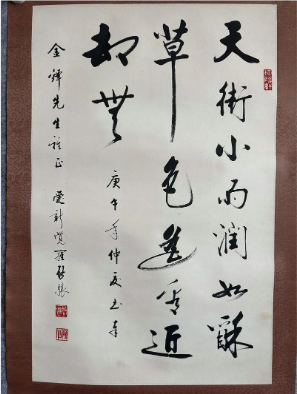 天街小雨潤如酥
草色遥看近
却無
庚午年仲夏書奉
金鐸先生雅正 愛新覺羅